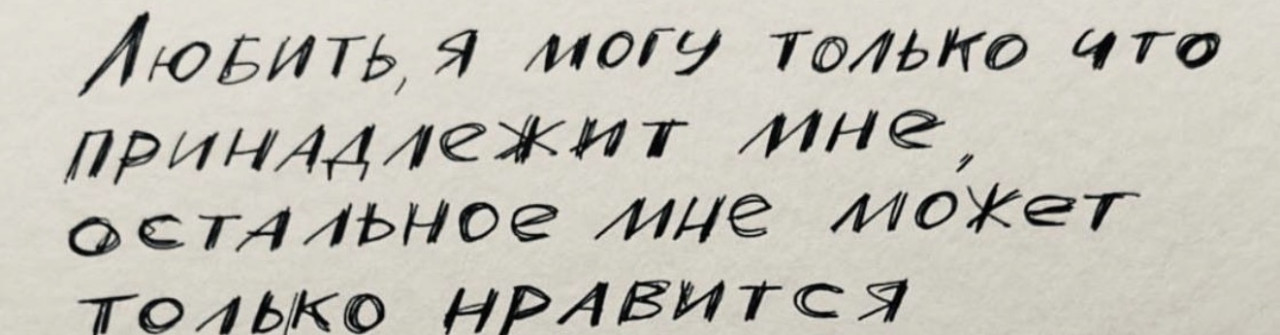 Любить, я могу только что
принадлежит мне,
остальное мне может
только нравится